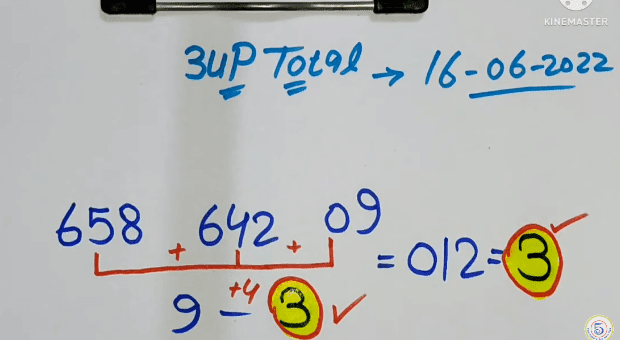 KINEMASTER
3UP Total → 16-06-2022
658 + 642 + 09 = 012 = 3 ✓
9 – +4 3 ✓
5